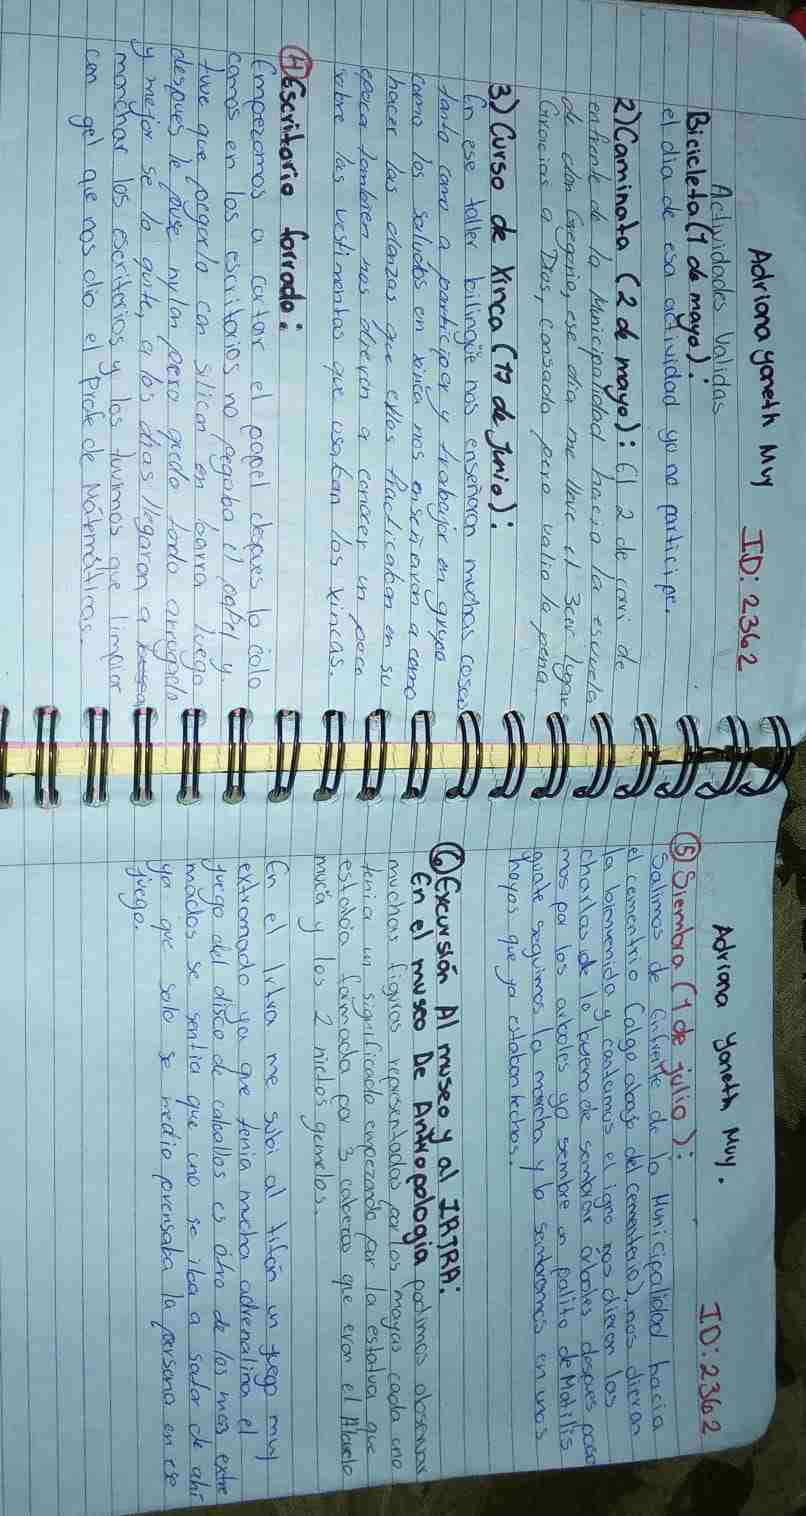 Adriana Yaneth Muy ID: 2362
Actividades Validas
Bicicleta (1 de mayo):
el dia de esa actividad yo no participe.
2) Caminata (2 de mayo): El 2 de corri de
enfrente de la Municipalidad hacia la escuela
de don Gregorio, ese dia me lleve el 3cer lugar
Gracias a Dios, cansada pero valio la pena
3) Curso de Xinca (17 de Junio):
En ese taller bilingüe nos enseñaron muchas cosas
tanto como a participar y trabajar en grupo
como los saludos en xinca nos enseñaron a como
hacer las danzas que ellos practicaban en su
epoca tambien nos dieron a conocer un poco
sobre las vestimentas que usaban los xincas.
4) Escritorio forrado:
Empezamos a cortar el papel despues lo colo
camos en los escritorios no pegaba el papel y
tuve que pegarlo con silicon en barra luego
despues le puse nylon pero quedo todo arrugado
y mejor se lo quite, a los dias llegaron a
manchar los escritorios y los tuvimos que limpiar
con gel que nos dio el Profe de Mátemáticas.
Adriana Yaneth Muy. ID: 2362
5) Siembra (1 de julio):
Salimos de enfrente de la Municipalidad hacia
el cementrio (algo abajo del cementerio), nos dieron
la bienvenida y cantamos el igno nos dieron las
charlas de lo bueno de sembrar arboles despues pasa
mos por los arboles yo sembre un palito de Matilis
guate seguimos la marcha y lo sembramos en unos
hoyos que ya estaban hechos.
6) Excursión Al museo y al IRTRA:
En el museo De Antropologia pudimos observar
muchas figuras representadas por los mayas cada uno
tenia un significado empezando por la estatua que
estaba formada por 3 cabezas que eran el Abuelo
muca y los 2 nietos gemelos.
En el Irtra me subi al tifón un juego muy
extremado ya que tenia mucha adrenalina el
juego del disco de caballos es otro de los mas extre
mados se sentia que uno se iba a salir de ahi
ya que solo se medio prensaba la persona en ese
juego.